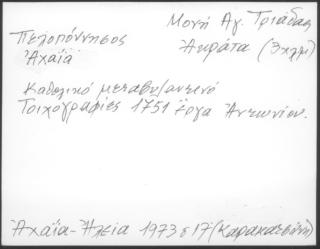 Πελοπόννησος
Ἀχαΐα
Μονή Αγ. Τριάδας
Ἀκράτα (3χλμ)
Καθολικό μεταβυζαντινό
Τοιχογραφίες 1751 ἔργα Ἀντωνίου.
Ἀχαΐα-Ἠλεία 1973 σ 17 (Καρακατσάνη)